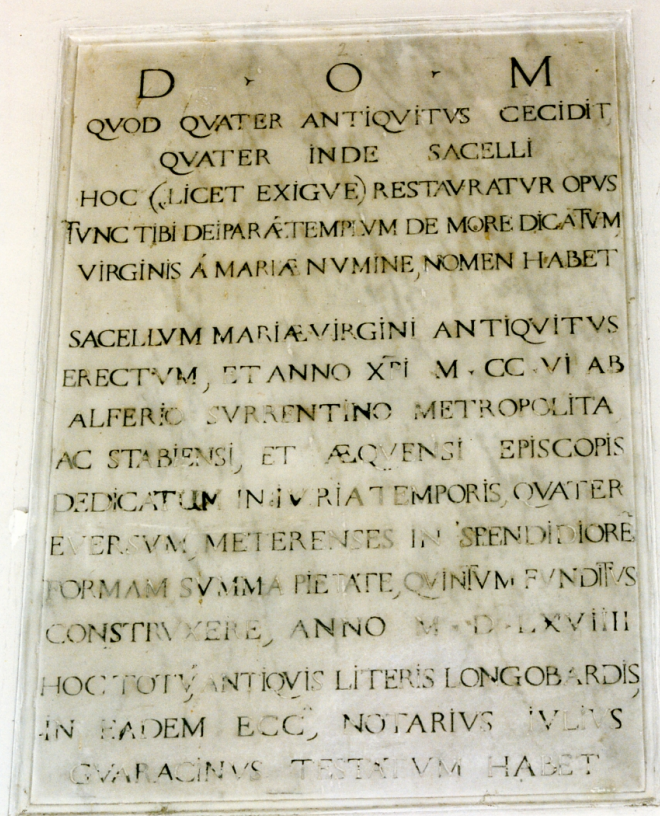 D · O · M
QVOD QVATER ANTIQVITVS CECIDIT,
QVATER INDE SACELLI
HOC (LICET EXIGVE) RESTAVRATVR OPVS
TVNC TIBI DEIPARÆ TEMPLVM DE MORE DICATVM
VIRGINIS Á MARIÆ NVMINE, NOMEN HABET
SACELLVM MARIÆ VIRGINI ANTIQVITVS
ERECTVM, ET ANNO XPI M · CC · VI AB
ALFERIO SVRRENTINO METROPOLITA
AC STABIENSI, ET ÆQVENSI EPISCOPIS
DEDICATUM INIVRIA TEMPORIS, QVATER
EVERSVM, METERENSES IN SPENDIDIORẼ
FORMAM SVMMA PIETATE, QVINTVM FVNDITVS
CONSTRVXERE, ANNO M · D · LXVIIII
HOC TOTV̄ ANTIQVIS LITERIS LONGOBARDIS,
IN EADEM ECC̄, NOTARIVS IVLIVS
GVARACINVS TESTATVM HABET